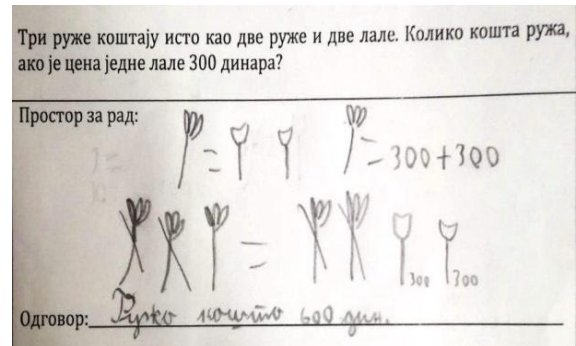 Три руже коштају исто као две руже и две лале. Колико кошта ружа,
ако је цена једне лале 300 динара?
Простор за рад:
= = 300 + 300
= 300 300
Одговор: Ружа кошта 600 дин.